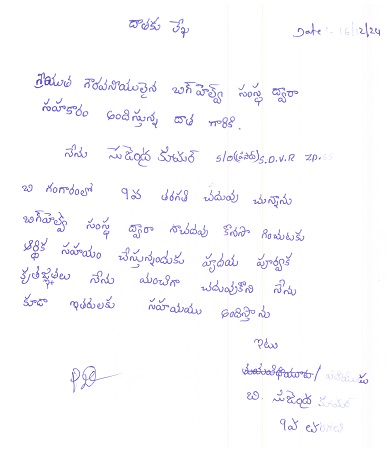 దాతకు లేఖ
Date :- 16/2/24
గౌరవనీయులైన బిగ్ హెల్ప్ సంస్థ ద్వారా
సహకారం అందిస్తున్న దాత గారికి.
నేను సుజేంద్ర కుమార్ S/O S.O.V.R Z.P.
బి గంగారంలో 9వ తరగతి చదువు చున్నాను
బిగ్ హెల్ప్ సంస్థ ద్వారా నాచదువు
ఆర్థిక సహాయం చేస్తున్నందుకు హృదయ పూర్వక
కృతజ్ఞతలు నేను మంచిగా చదువుకొని నేను
కూడా ఇతరులకు సహాయము అందిస్తాను
ఇటు
బి. సుజేంద్ర కుమార్
9వ తరగతి